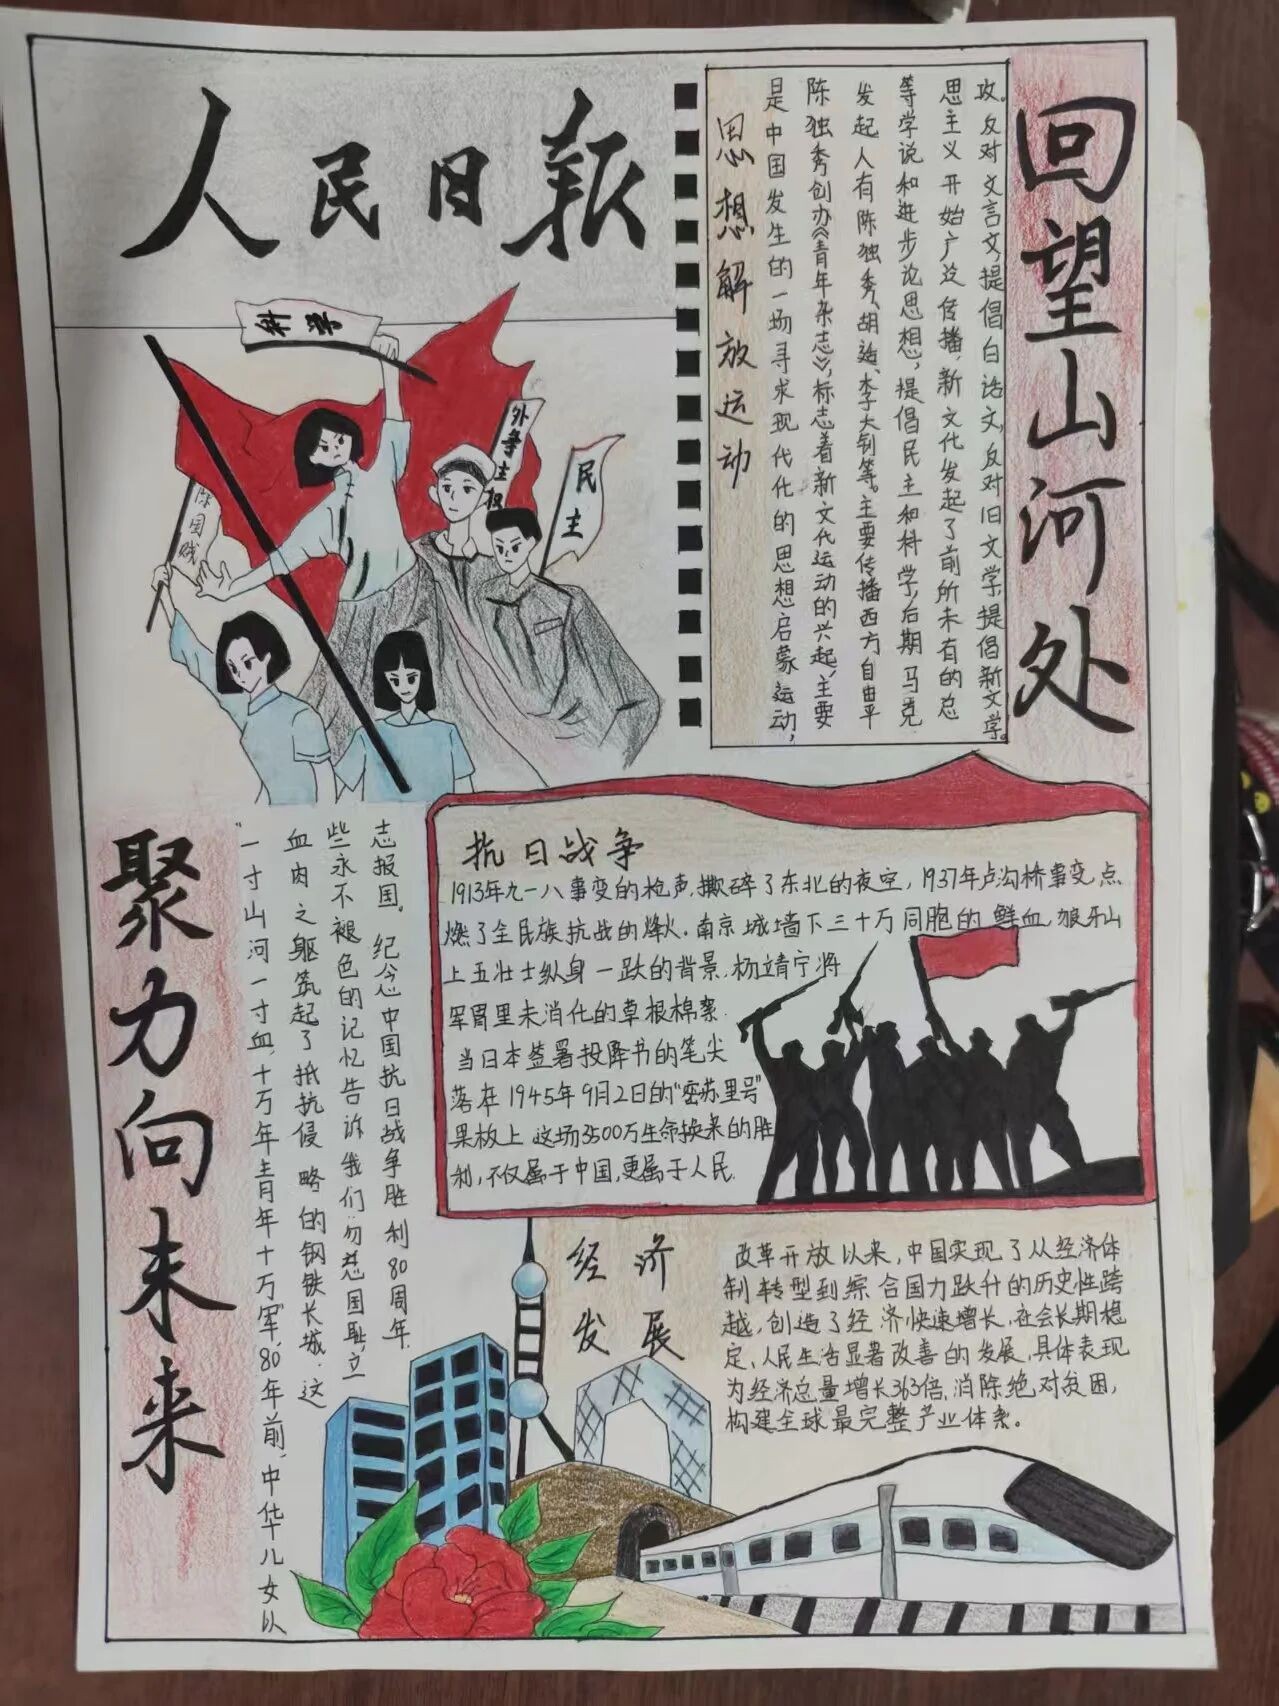 人民日报
科学
外争主权
民主
除国贼
回望山河处
思想解放运动
是中国发生的一场寻求现代化的思想启蒙运动,
陈独秀创办《青年杂志》,标志着新文化运动的兴起,主要
发起人有陈独秀、胡适、李大钊等。主要传播西方自由平
等学说和进步论思想,提倡民主和科学,后期马克
思主义开始广泛传播,新文化发起了前所未有的总
攻。反对文言文,提倡白话文,反对旧文学,提倡新文学。
抗日战争
1913年九一八事变的枪声,撕碎了东北的夜空,1937年卢沟桥事变点
燃了全民族抗战的烽火.南京城墙下三十万同胞的鲜血,狼牙山
上五壮士纵身一跃的背景,杨靖宁将
军胃里未消化的草根棉絮.
当日本签署投降书的笔尖
落在1945年9月2日的"密苏里号"
果板上,这场3500万生命换来的胜
利,不仅属于中国,更属于人民.
聚力向未来
"一寸山河一寸血,十万年青年十万军",80年前,中华儿女以
血肉之躯筑起了抵抗侵略的钢铁长城.这
些永不褪色的记忆告诉我们:勿忘国耻,立
志报国。纪念中国抗日战争胜利80周年.
经济
发展
改革开放以来,中国实现了从经济体
制转型到综合国力跃升的历史性跨
越,创造了经济快速增长,社会长期稳
定,人民生活显著改善的发展,具体表现
为经济总量增长363倍,消除绝对贫困,
构建全球最完整产业体系。